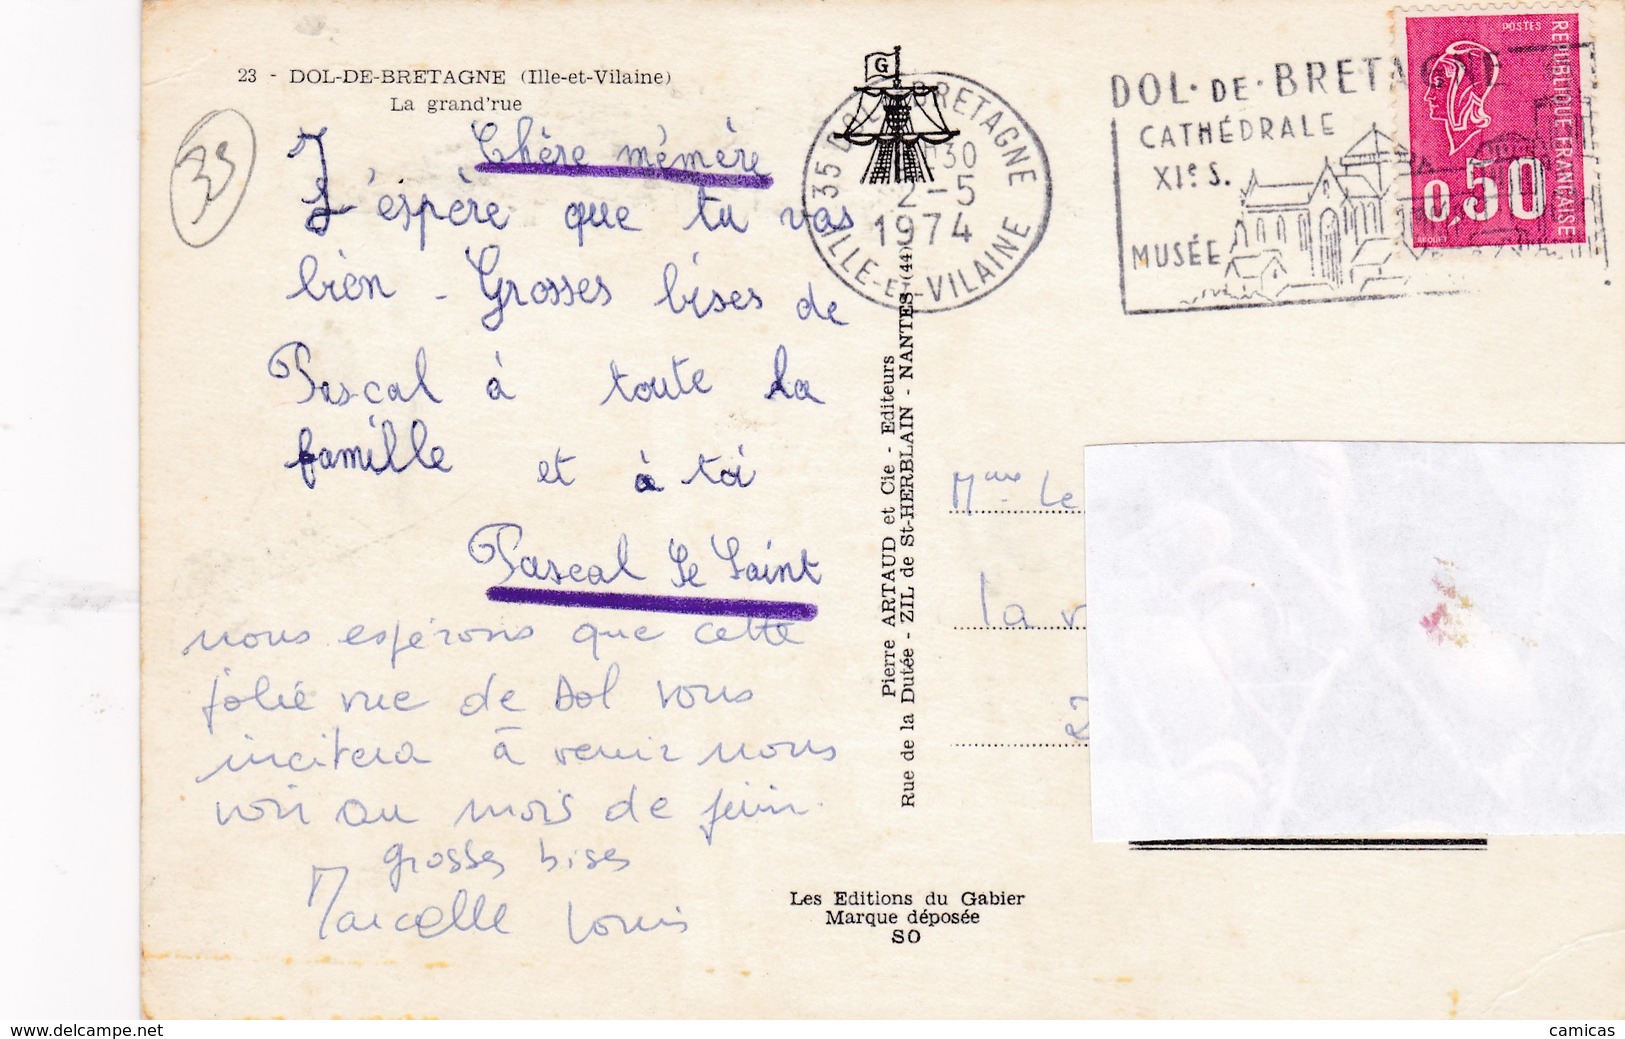 23 - DOL-DE-BRETAGNE (Ille-et-Vilaine)
La grand'rue
33
J
Chère mémère
J'éspère que tu vas
bien - Grosses bises de
Pascal à toute la
famille et à toi
Pascal Le Saint
nous espérons que cette
jolie vue de Dol vous
incitera à venir nous
voir au mois de juin.
grosses bises
Marcelle Louis
G
35 DOL-DE-BRETAGNE
30
2-5
1974
ILLE-ET-VILAINE
DOL·DE·BRETAGNE
CATHÉDRALE
XIe S.
MUSÉE
POSTES
REPUBLIQUE FRANÇAISE
0,50
BEQUET
Pierre ARTAUD et Cie - Editeurs
Rue de la Dutée - ZIL de St-HERBLAIN - NANTES (44)
Mme Le
la v
2
Les Editions du Gabier
Marque déposée
SO
www.delcampe.net
camicas